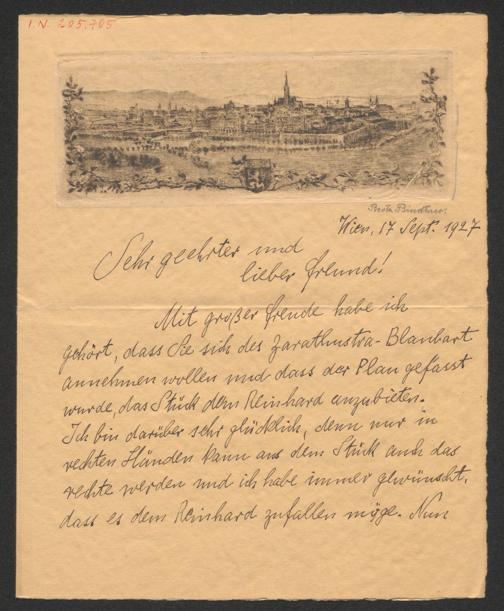 I.N. 205.705
Wien, 17 Sept. 1927
Sehr geehrter und
lieber Freund!
Mit großer Freude habe ich
gehört, dass Sie sich des Zarathustra-Blaubart
annehmen wollen und dass der Plan gefasst
wurde, das Stück dem Reinhard anzubieten.
Ich bin darüber sehr glücklich, denn nur in
rechten Händen kann aus dem Stück auch das
rechte werden und ich habe immer gewünscht,
dass es dem Reinhard zufallen möge. Nun